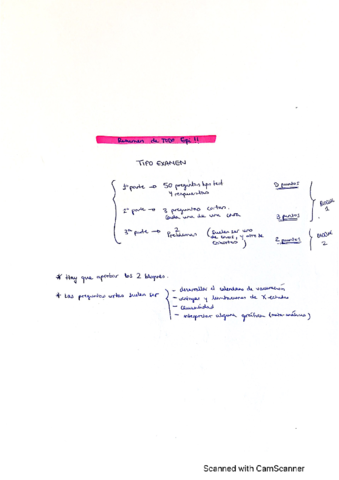 Resumen de TODO Epi II
TIPO EXAMEN
1ª parte → 50 preguntas tipo test
4 respuestas
5 puntos
2ª parte → 3 preguntas cortas.
cada una de una cara
3 puntos
BLOQUE 1
3ª parte → 2 Problemas (Suelen ser uno
de , y otro de
)
2 puntos
BLOQUE 2
* Hay que aprobar los 2 bloques.
* Las preguntas cortas suelen ser
- desarrollar el calendario de vacunación
- ventajas y limitaciones de X estudio
- causalidad
- interpretar alguna gráfica